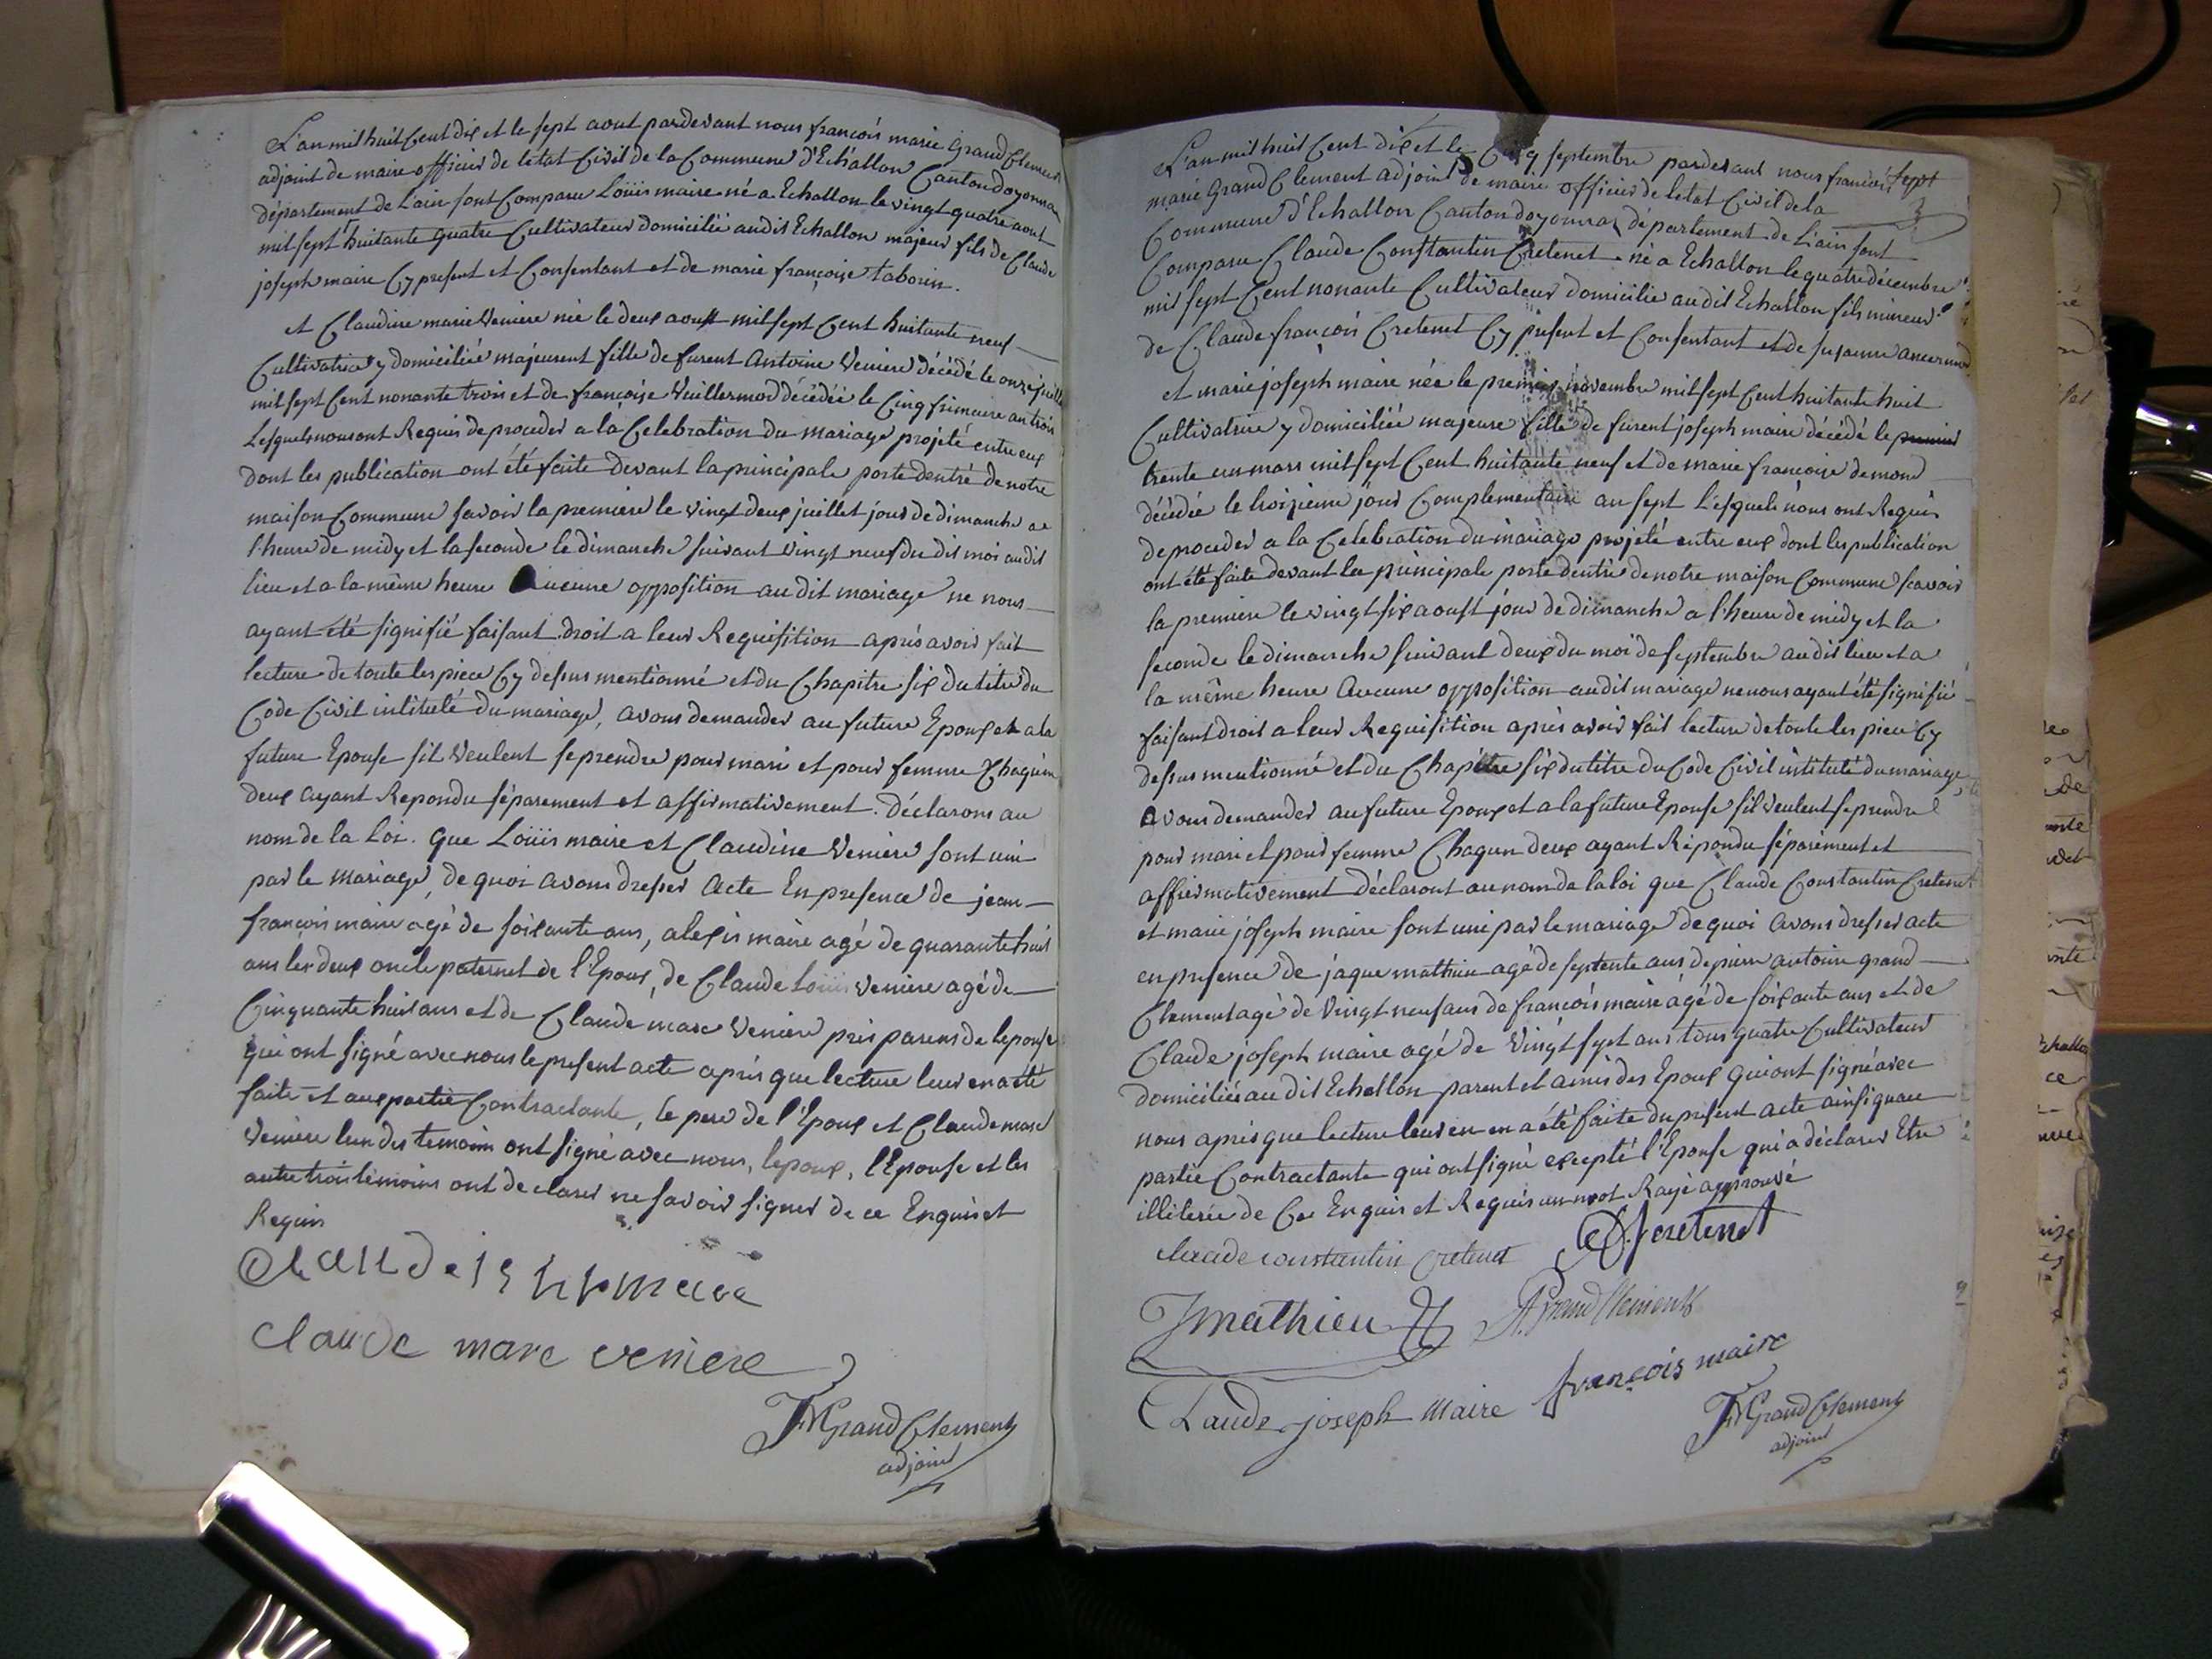 L'an mil huit Cent dix et le sept aout pardevant nous francois marie Grand Clement
adjoint de maire officier de letat Civil de la Commune d'Echallon Canton doyonna
département de L'ain sont Comparu Loüis maire né a Echallon le vingt quatre aout
mil sept huitante quatre Cultivateur domicilié audit Echallon majeur fils de Claude
joseph maire Cy present et Consentant et de marie françoise taborin.
et Claudine marie Veniere née le deux aoust mil sept Cent huitante neuf
Cultivatrice y domiciliée majeurent fille de furent Antoine Veniere décédé le onze juillet
mil sept Cent nonante trois et de françoise Vuillermoz décédée le Cinq frimaire an trois
Lesquels nous ont Requis de proceder a la Celebration du mariage projeté entre eux
dont les publication ont été faite devant la principale porte dentré de notre
maison Commune savoir la premiere le vingt deux juillet jour de dimanche a
l'heure de midy et la seconde le dimanche suivant vingt neuf du dit moi audit
lieu et a la même heure Aucune opposition au dit mariage ne nous
ayant été signifié faisant droit a leur Requisition après avoir fait
lecture de toute les piece Cy dessus mentionné et du Chapitre six du titre du
Code Civil intitulé du mariage, avons demander au future Epoux et a la
future Epouse sil veulent se prendre pour mari et pour femme Chaqun
deux ayant Repondu séparement et affirmativement. déclarons au
nom de la Loi. que Loüis maire et Claudine Veniere sont uni
par le mariage, de quoi avons dresser Acte En presence de jean
françois maire agé de soixante ans, alexis maire agé de quarante huit
ans les deux oncle paternel de l'Epoux, de Claude Loüis Veniere agé de
Cinquante huit ans et de Claude marc Veniere près parens de lepouse
qui ont signé avec nous le present acte après que lecture leur en a été
faite et aux partie Contractante, le pere de l'Epoux et Claude marc
Veniere lun des temoins ont signé avec nous, lepoux, l'Epouse et les
autre trois témoins ont declarer ne savoir signer de ce Enquis et
Requis
Claude marc veniere
FMGrandClement
adjoint
L'an mil huit Cent dix et le septembre pardevant nous francois sept
marie Grand Clement adjoint de maire officier de letat Civil de la
Commune d'Echallon Canton doyonnax département de L'ain sont
Comparu Claude Constantin Cretenet né a Echallon le quatre décembre
mil sept Cent nonante Cultivateur domicilié audit Echallon fils mineur
de Claude françois Cretenet Cy present et Consentant et de susanne
et marie joseph maire née le premier novembre mil sept Cent huitante huit
Cultivatrice y domiciliée majeure fille de furent joseph maire décédé le premier
trente un mars mil sept Cent huitante neuf et de marie francoise demond
décédée le troisieme jour Complementaire an sept Lesquels nous ont Requis
de proceder a la Celebration du mariage projeté entre eux dont les publication
ont été faite devant la principale porte dentré de notre maison Commune scavoir
la premiere le vingt six aoust jour de dimanche a l'heure de midy et la
seconde le dimanche suivant deux du moi de septembre audit lieu et a
la même heure Aucune opposition audit mariage ne nous ayant été signifié
faisant droit a leur Requisition après avoir fait lecture de toute les piece Cy
dessus mentionné et du Chapitre six du titre du Code Civil intitulé du mariage,
avons demander au future Epoux et a la future Epouse sil veulent se prendre
pour mari et pour femme Chaqun deux ayant Répondu séparément et
affirmativement déclaront au nom de la loi que Claude Constantin Cretenet
et marie joseph maire sont uni par le mariage de quoi avons dresser acte
en presence de jaque mathieu agé de septente ans de pierre antoine grand
Clement agé de vingt neuf ans de françois maire agé de soixante ans et de
Claude joseph maire agé de vingt sept ans tous quatre Cultivateur
domiciliés audit Echallon parent et amis des Epoux qui ont signé avec
nous après que lecture leur en en a été faite du present acte ainsi quau
partie Contractante qui ont signé excepté l'Epouse qui a déclarer Etre
illiterée de Ce Enquis et Requis un mot Rayé approuvé
claude constantin cretenet Cfcretenet
Jmathieu A.GrandClement
Claude joseph Maire françois maire
FMGrandClement
adjoint